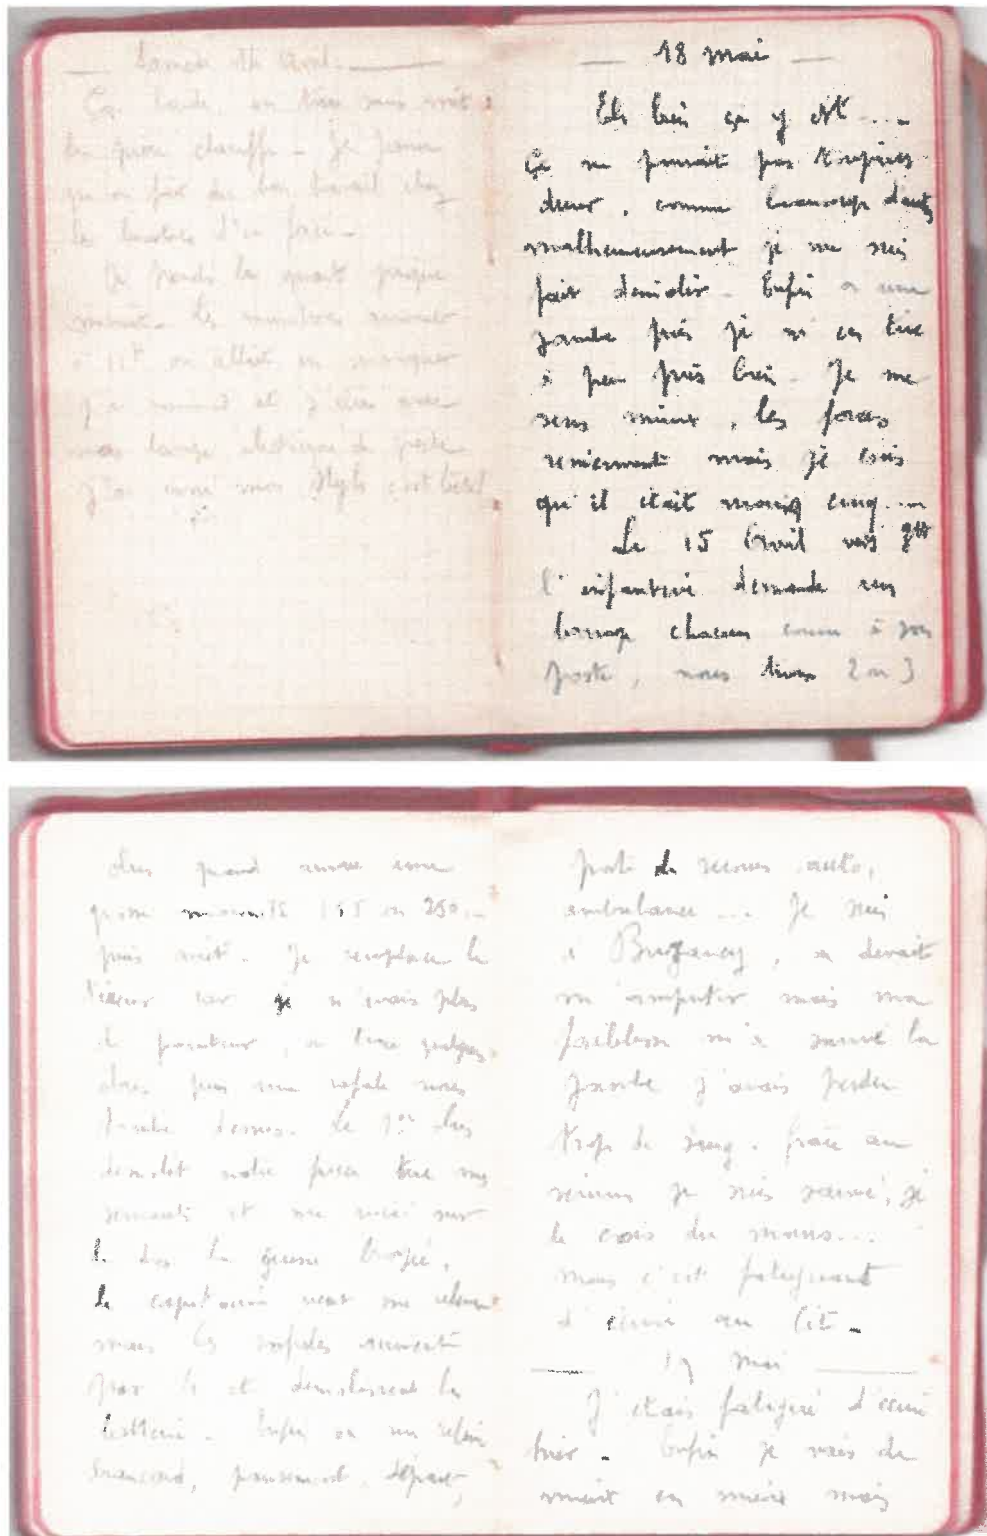 Samedi 14 avril
Ça barde, on tire sans arrêt
la pièce chauffe. Je pense
qu'on fait du bon travail chez
les boches d'en face.
minuit. les munitions
à 11h on allait en manquer
j'ai
ma lampe électrique de poche
18 mai
Eh bien ça y est ...
Ça ne pouvait pas toujours
durer, comme beaucoup d'autres
malheureusement je me suis
fait démolir. Enfin à une
jambe près je m'en tire
à peu près bien. Je me
sens mieux, les forces
reviennent mais je crois
qu'il était moins cinq....
Le 15 Avril vers 9H
l'infanterie demande un
barrage chacun court à son
poste, nous tirons 2 ou 3
obus quand arrive une
grosse 155 ou 250...
puis arrêt. Je remplace le
tireur car je n'avais plus
de pointeur, on tire quelques
obus puis une rafale nous
tombe dessus. Le 1er obus
démolit notre pièce tue mes
servants et me voici sur
le dos la jambe broyée.
Le capitaine veut me relever
mais les rafales arrivent
par 4 et démolissent la
batterie. Enfin on me relève
brancard, pansement, départ,
poste de secours auto,
ambulance ... Je suis
à Buzancy, on devait
m'amputer mais ma
faiblesse m'a sauvé la
jambe j'avais perdu
trop de sang. Grâce au
sérum je suis sauvé, je
le crois du moins...
mais c'est fatiguant
d'écrire au lit.
19 mai
J'étais fatigué d'écrire
hier. Enfin je vais de
mieux en mieux mais